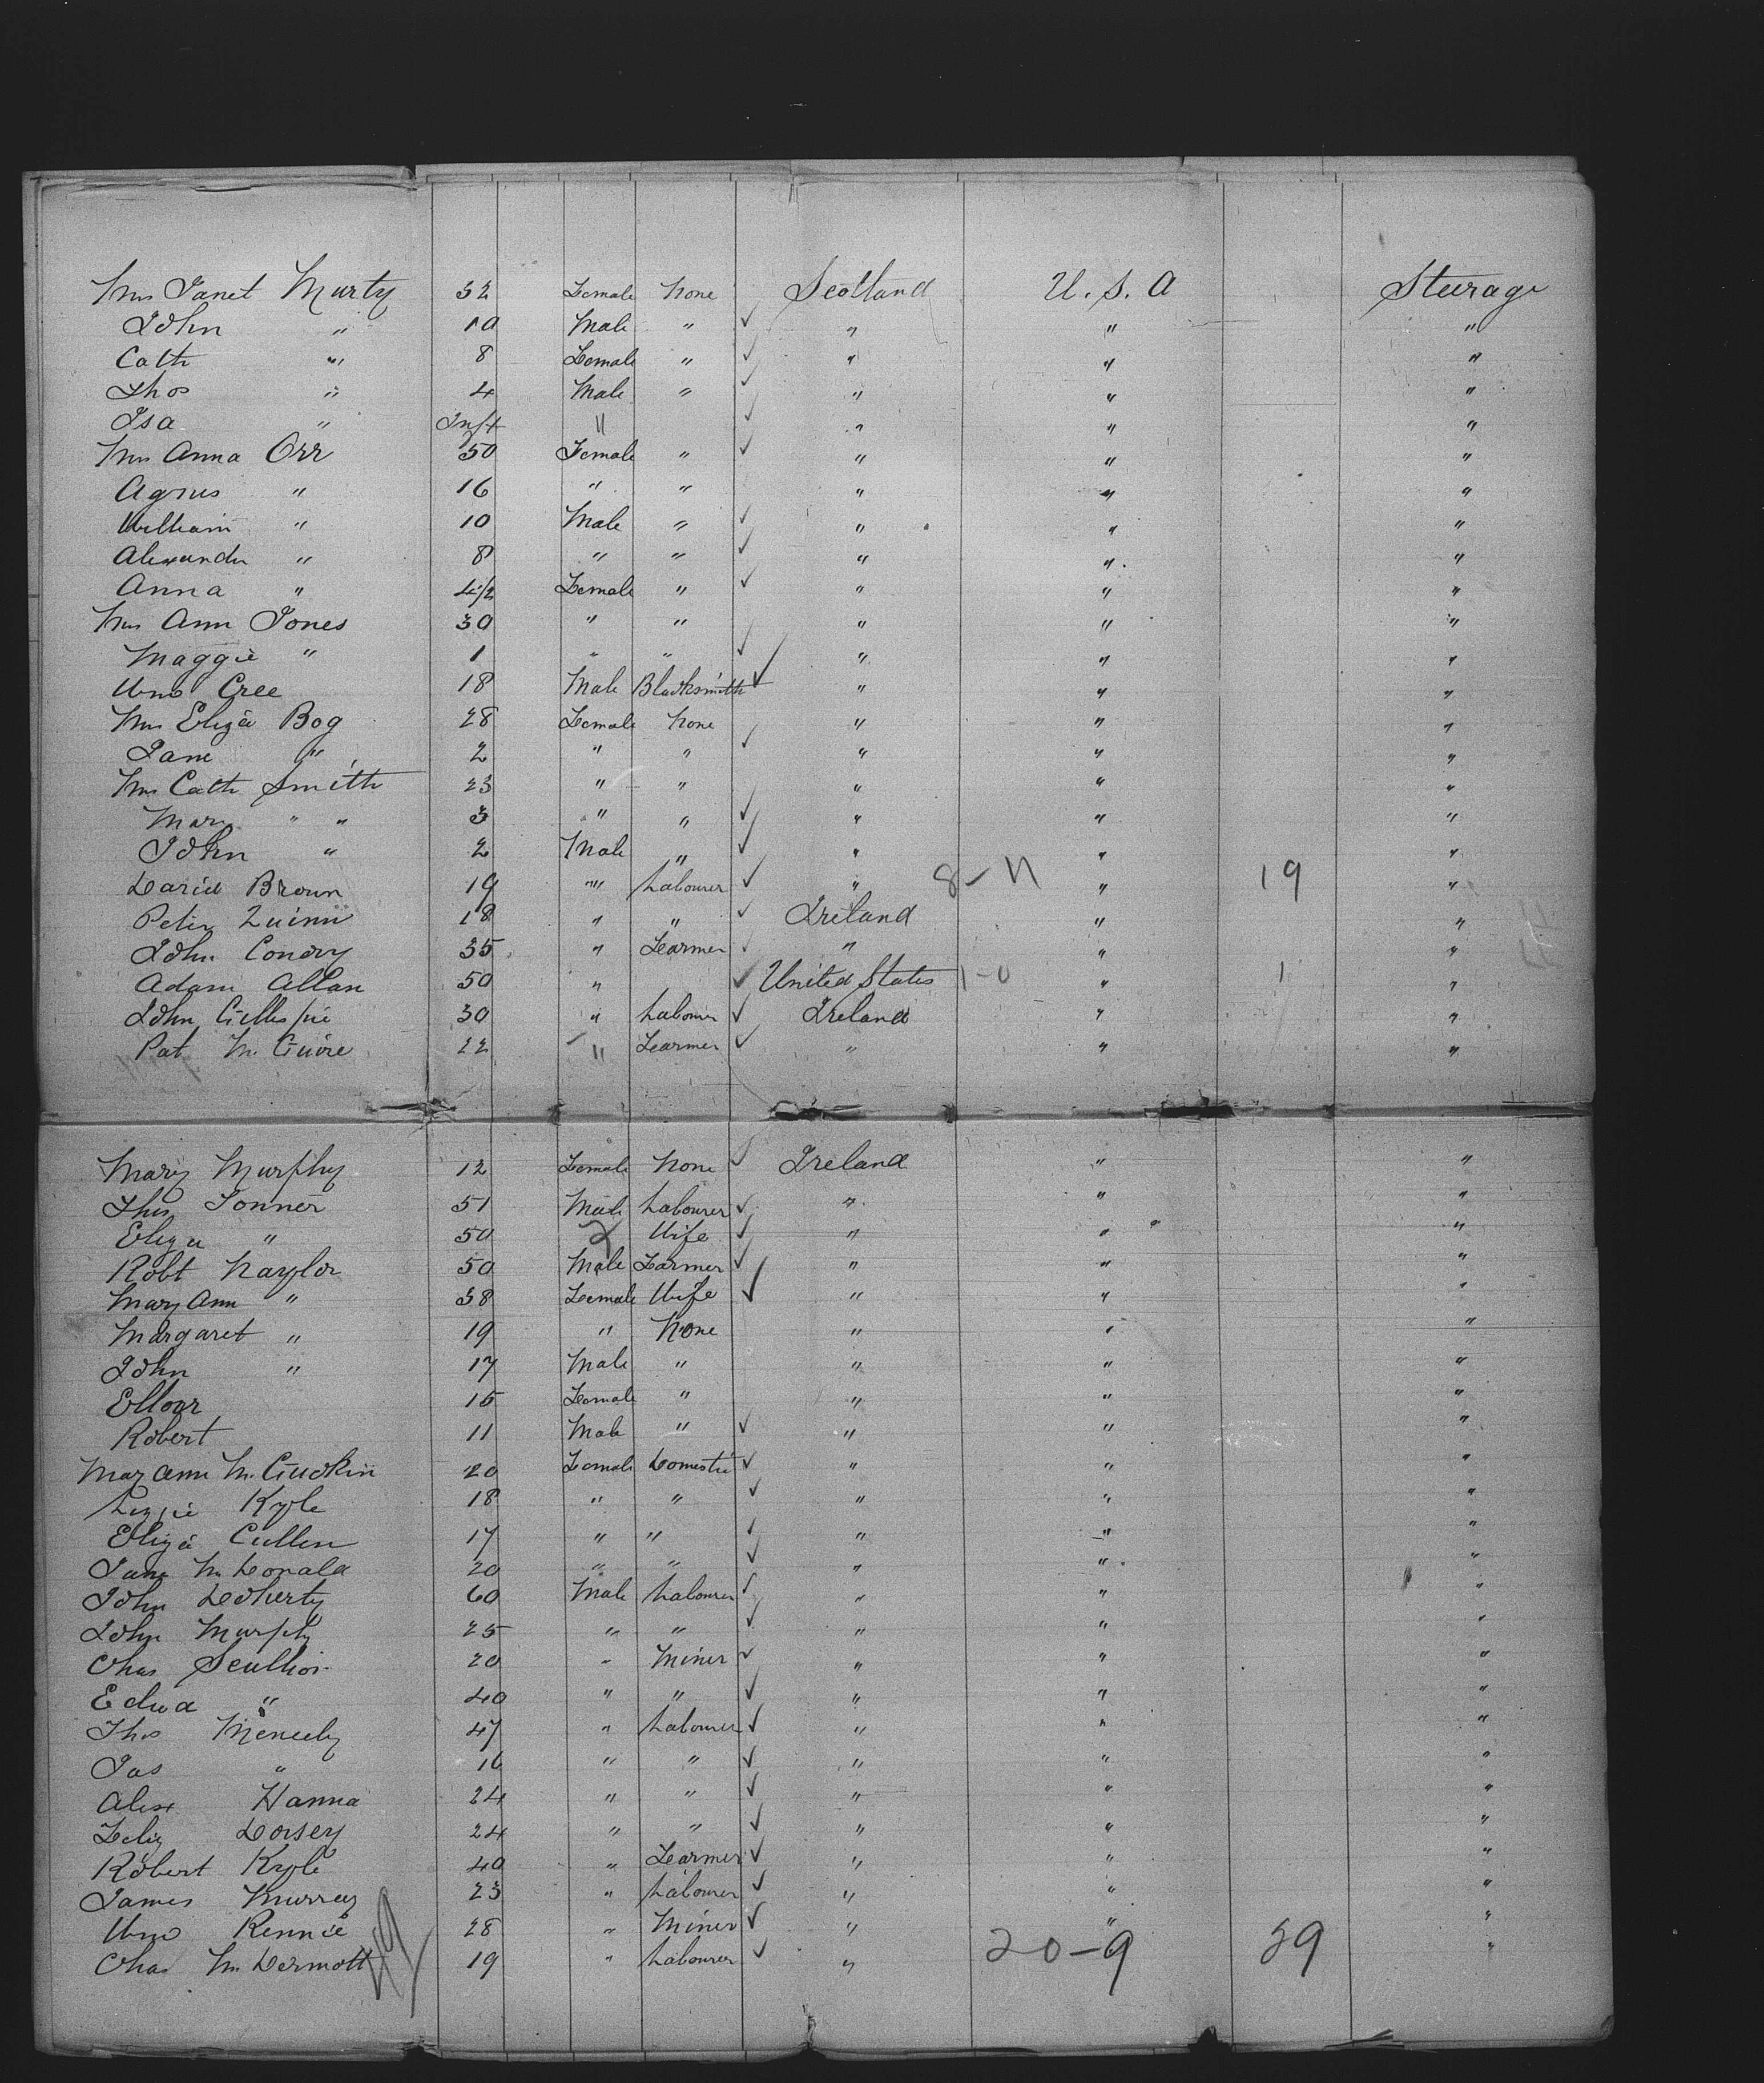 Mrs Janet Murty 32 Female None Scotland U.S.A Steerage
John " 10 Male " " " "
Cath " 8 Female " " " "
Thos " 4 Male " " " "
Isa " Inft " " " "
Mrs Anna Orr 50 Female " " " "
Agnes " 16 " " " " "
William " 10 Male " " " "
Alexander " 8 " " " " "
Anna " 4/2 Female " " " "
Mrs Ann Jones 30 " " " " "
Maggie " 1 " " " " "
Wm Cree 18 Male Blacksmith " " "
Mrs Eliza Bog 28 Female None " " "
Jane " 2 " " " " "
Mrs Cath Smith 23 " " " " "
Mary " " 3 " " " " "
John " 2 Male " " " "
David Brown 19 " Labourer " 8-11 " 19 "
Peter Quinn 18 " " Ireland " "
John Conory 35 " Fearmer " " "
Adam Allan 50 " United States 1-0 " 1 "
John Gillespie 30 " Labourer Ireland " "
Pat McGuire 22 " Fearmer " " "
Mary Murphy 12 Female None Ireland " "
Thos Tonner 51 Male Labourer " " "
Eliza " 50 Wife " " "
Robt Naylor 50 Male Farmer " " "
Mary Ann " 38 Female Wife " " "
Margaret " 19 " None " " "
John " 17 Male " " " "
Ellour 15 Female " " " "
Robert 11 Male " " " "
Mar Ann McGuckin 20 Female Domestic " " "
Lizzie Kyle 18 " " " " "
Eliza Cullen 17 " " " " "
Jane McDonald 20 " " " " "
John Doherty 60 Male Labourer " " "
John Murphy 25 " " " " "
Chas Scullion 20 " Miner " " "
Edwd " 40 " " " " "
Thos Meneely 47 " Labourer " " "
Jas " 16 " " " " "
Alex Hanna 24 " " " " "
Felix Dorsey 24 " " " " "
Robert Kyle 40 " Fearmer " " "
James Murray 23 " Labourer " " "
Wm Rennie 28 " Miner " " "
Chas McDermott 19 " Labourer " 20-9 29 "
49